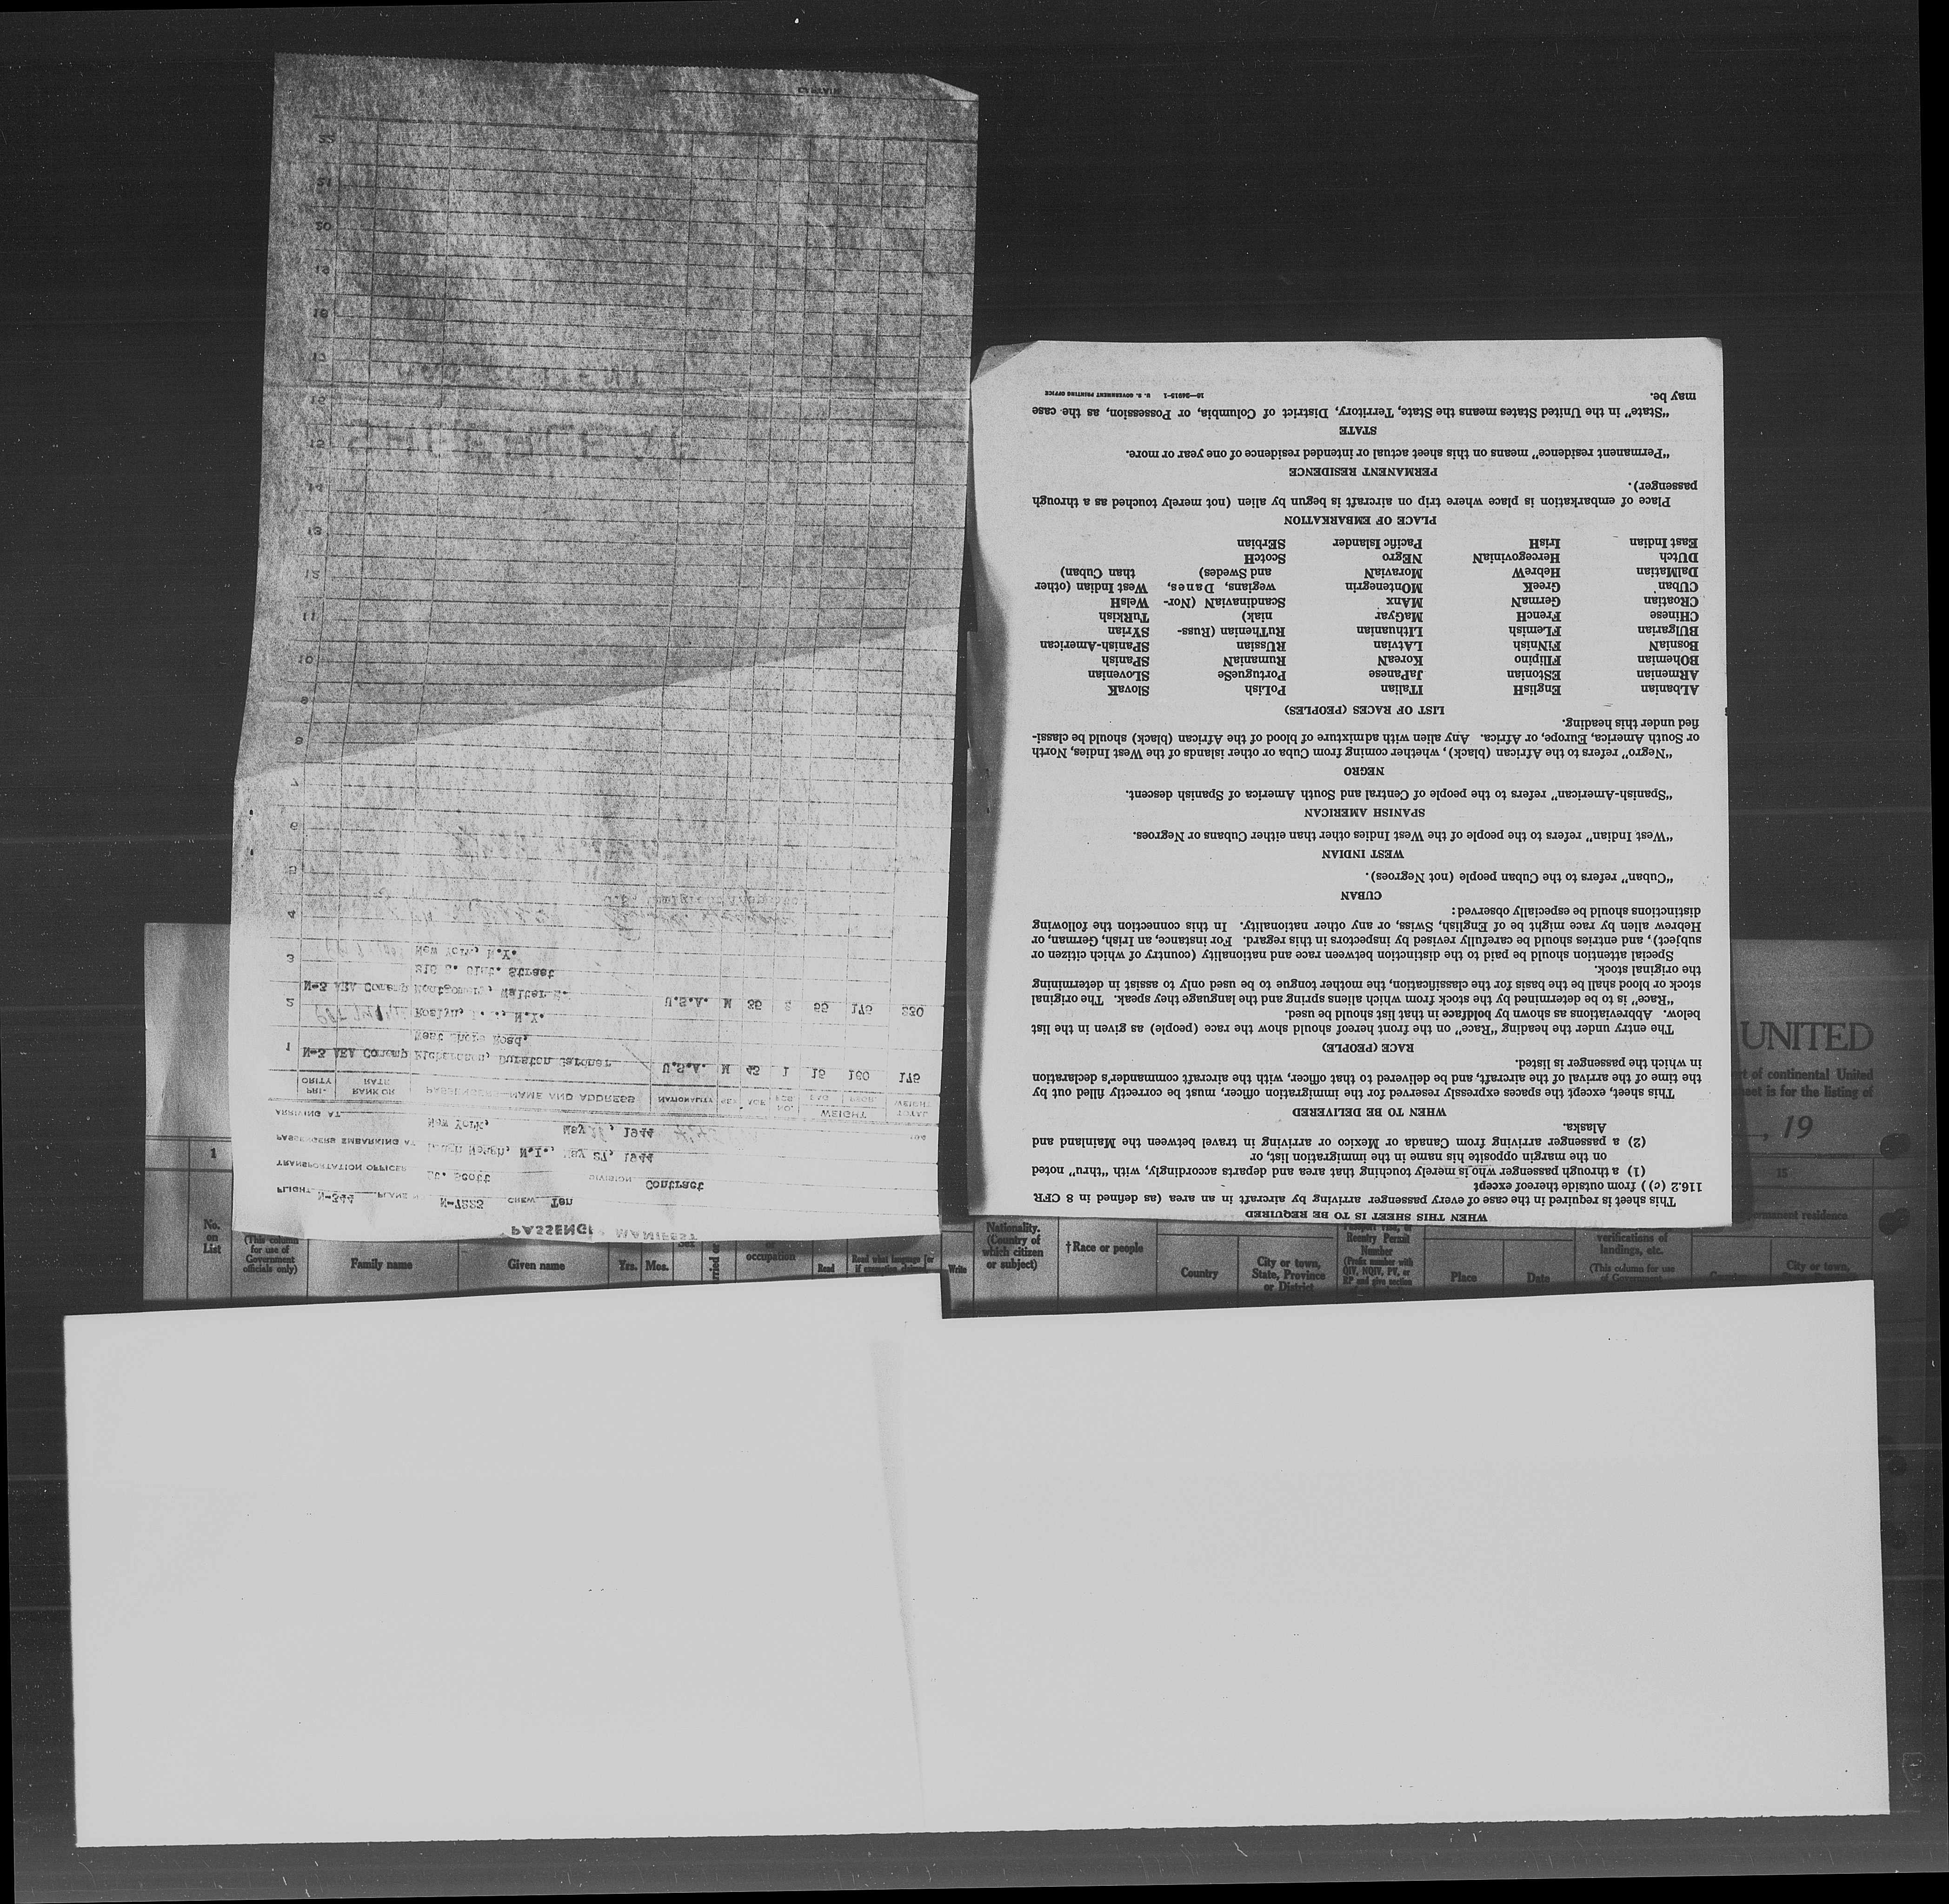 PASSENGER MANIFEST
FLIGHT N-344 PLANE N-7223 CREW Ten
TRANSPORTATION OFFICER Lt. Scott DIVISION Contract
PASSENGERS EMBARKING AT N.I., May 27, 1944
ARRIVING AT New York, May 1944
PRI-ORITY RANK OR RATE PASSENGERS NAME AND ADDRESS NATIONALITY SEX AGE NO. PCS. BAG. WEIGHT TOTAL WEIGHT
1 N-3 AEA Conemp Richardson, Durston Gardner U.S.A. M 43 1 15 160 175
West Shore Road,
2 Roslyn, N.Y.
N-3 AEA Conemp Montgomery, Walter U.S.A. M 35 2 55 175 230
Street
3 New York, N.Y.
4
5
6
7
8
9
10
11
12
13
14
15
16
17
18
19
20
21
22
CAPTAIN
WHEN THIS SHEET IS TO BE REQUIRED
This sheet is required in the case of every passenger arriving by aircraft in an area (as defined in 8 CFR
116.2 (c)) from outside thereof except
(1) a through passenger who is merely touching that area and departs accordingly, with “thru” noted
on the margin opposite his name in the immigration list, or
(2) a passenger arriving from Canada or Mexico or arriving in travel between the Mainland and
Alaska.
WHEN TO BE DELIVERED
This sheet, except the spaces expressly reserved for the immigration officer, must be correctly filled out by
the time of the arrival of the aircraft, and be delivered to that officer, with the aircraft commander’s declaration
in which the passenger is listed.
RACE (PEOPLE)
The entry under the heading “Race” on the front hereof should show the race (people) as given in the list
below. Abbreviations as shown by boldface in that list should be used.
“Race” is to be determined by the stock from which aliens spring and the language they speak. The original
stock or blood shall be the basis for the classification, the mother tongue to be used only to assist in determining
the original stock.
Special attention should be paid to the distinction between race and nationality (country of which citizen or
subject), and entries should be carefully revised by inspectors in this regard. For instance, an Irish, German, or
Hebrew alien by race might be of English, Swiss, or any other nationality. In this connection the following
distinctions should be especially observed:
CUBAN
“Cuban” refers to the Cuban people (not Negroes).
WEST INDIAN
“West Indian” refers to the people of the West Indies other than either Cubans or Negroes.
SPANISH AMERICAN
“Spanish-American” refers to the people of Central and South America of Spanish descent.
NEGRO
“Negro” refers to the African (black), whether coming from Cuba or other islands of the West Indies, North
or South America, Europe, or Africa. Any alien with admixture of blood of the African (black) should be classi-
fied under this heading.
LIST OF RACES (PEOPLES)
ALbanian EngliSH ITalian PoLish SlovaK
ARmenian EStonian JaPanese PortugueSe SLOvenian
BOhemian FIlipino KoreaN RumaniaN SPanish
BosniaN FiNnish LAtvian RUssian SPanish-American
BUlgarian FLemish LIthuanian RuThenian (Russ- SYrian
CHinese FrencH MaGyar niak) TuRkish
CRoatian GermaN MAnx ScandinaviaN (Nor- WelsH
CUban GreeK MOntenegrin wegians, Danes, West Indian (other
DalMatian HebreW MoraviaN and Swedes) than Cuban)
DUtch HercegoviniaN NEgro ScotcH
East Indian IrisH Pacific Islander SErbian
PLACE OF EMBARKATION
Place of embarkation is place where trip on aircraft is begun by alien (not merely touched as a through
passenger).
PERMANENT RESIDENCE
“Permanent residence” means on this sheet actual or intended residence of one year or more.
STATE
“State” in the United States means the State, Territory, District of Columbia, or Possession, as the case
may be.
16—24915-1 U. S. GOVERNMENT PRINTING OFFICE
UNITED
of continental United
sheet is for the listing of
, 19
1
15
permanent residence
No. on List
(This column for use of Government officials only)
Family name
Given name
Yrs. Mos.
occupation
Read
Read what language [or if exemption claimed
Write
Nationality. (Country of which citizen or subject)
†Race or people
Country
City or town, State, Province or District
Reentry Permit Number (Prefix number with QIV, NQIV, PV, or RP and give section
Place
Date
verifications of landings, etc. (This column for use of Government
City or town,